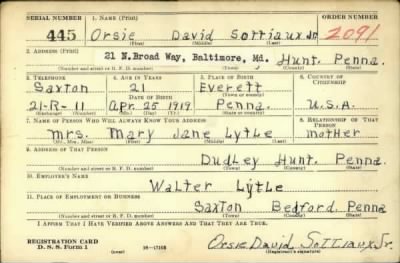 SERIAL NUMBER 1. NAME (Print) ORDER NUMBER
445 Orsie David Sottiaux Jr 2091
(First) (Middle) (Last)
2. ADDRESS (Print)
21 N. Broad Way, Baltimore, Md. Hunt. Penna.
(Number and street or R. F. D. number) (Town) (County) (State)
3. TELEPHONE 4. AGE IN YEARS 5. PLACE OF BIRTH 6. COUNTRY OF CITIZENSHIP
Saxton 21 Everett
DATE OF BIRTH (Town or county)
21-R-11 Apr. 25 1919 Penna. U.S.A.
(Exchange) (Number) (Mo.) (Day) (Yr.) (State or country)
7. NAME OF PERSON WHO WILL ALWAYS KNOW YOUR ADDRESS 8. RELATIONSHIP OF THAT PERSON
Mrs. Mary Jane Lytle mother
(Mr., Mrs., Miss) (First) (Middle) (Last)
9. ADDRESS OF THAT PERSON
Dudley Hunt. Penna.
(Number and street or R. F. D. number) (Town) (County) (State)
10. EMPLOYER'S NAME
Walter Lytle
11. PLACE OF EMPLOYMENT OR BUSINESS
Saxton Bedford Penna
(Number and street or R. F. D. number) (Town) (County) (State)
I AFFIRM THAT I HAVE VERIFIED ABOVE ANSWERS AND THAT THEY ARE TRUE.
REGISTRATION CARD
D. S. S. Form 1 (over) 16—17105 Orsie David Sottiaux Jr.
(Registrant's signature)